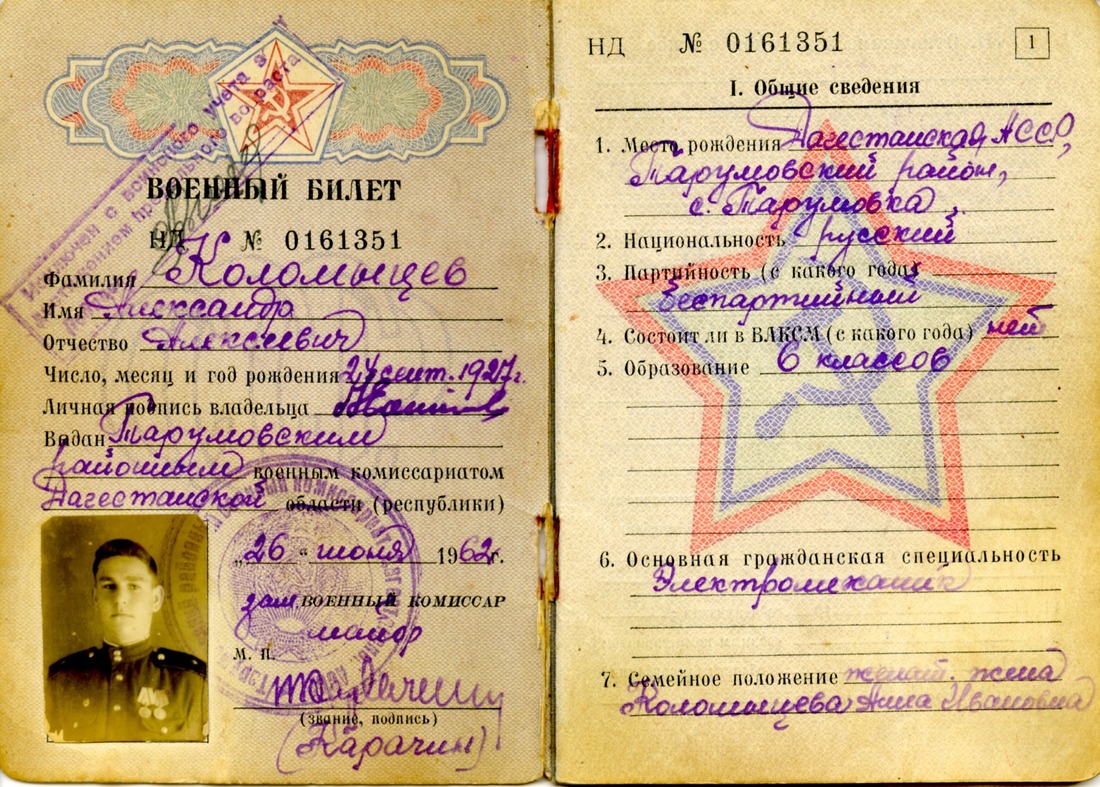 Исключен с воинского учета за
достижением предельного возраста
ВОЕННЫЙ БИЛЕТ
НД № 0161351
Фамилия Коломыцев
Имя Александр
Отчество Алексеевич
Число, месяц и год рождения 24 сент. 1927г.
Личная подпись владельца
Выдан Тарумовским
районным военным комиссариатом
Дагестанской области (республики)
„26" июня 1962г.
зам. ВОЕННЫЙ КОМИССАР
майор
М. П.
(звание, подпись)
(Карачин)
НД № 0161351 1
I. Общие сведения
1. Место рождения Дагестанская АССР,
Тарумовский район,
с. Тарумовка
2. Национальность русский
3. Партийность (с какого года)
беспартийный
4. Состоит ли в ВЛКСМ (с какого года) нет
5. Образование 6 классов
6. Основная гражданская специальность
Электромеханик
7. Семейное положение женат. жена
Коломыцева Анна Ивановна